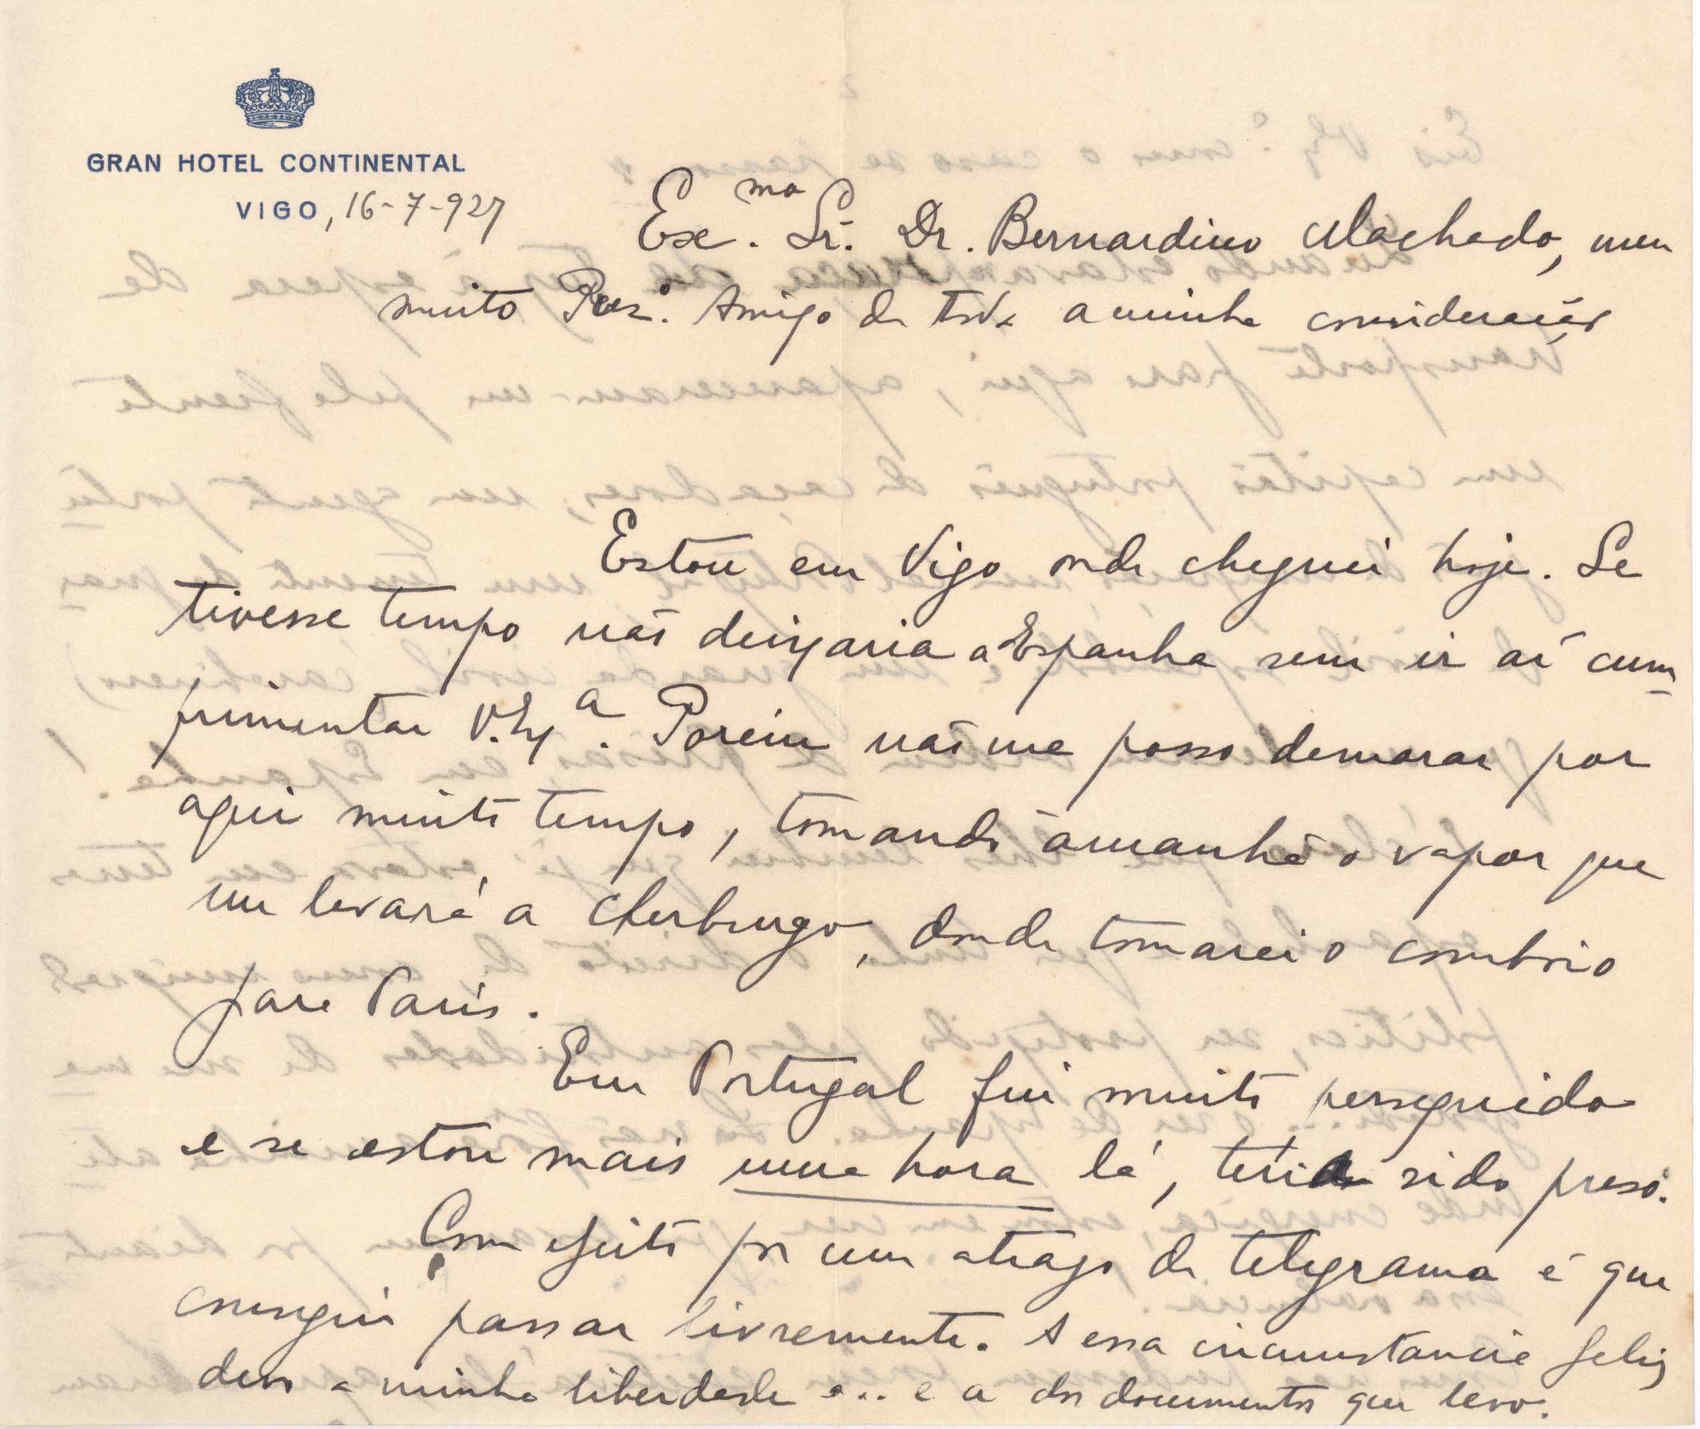 GRAN HOTEL CONTINENTAL
VIGO, 16-7-927
Exc.mo Sr. Dr. Bernardino Machado, meu
muito Prez.o Amigo de toda a minha consideração
Estou em Vigo onde cheguei hoje. Se
tivesse tempo não deixaria a Espanha sem ir aí cum-
primentar V. Ex.a. Porém não me posso demorar por
aqui muito tempo, tomando àmanhã o vapor que
me levará a Cherburgo, donde tomarei o comboio
para Paris.
Em Portugal fui muito perseguido
e se estou mais uma hora lá, teria sido preso.
Com efeito por um atrazo de telegrama é que
consegui passar livremente. A essa circunstancia feliz
devo a minha liberdade e... e a dos documentos que levo.